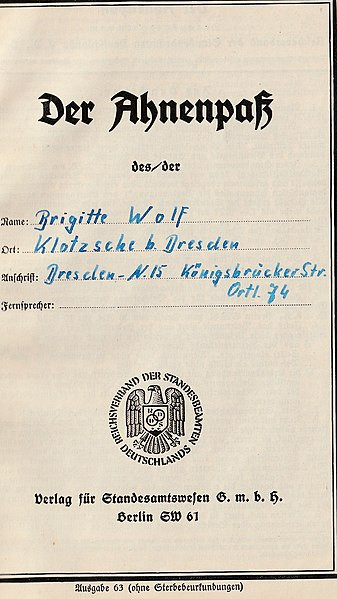 Der Ahnenpaß
des/der
Name: Brigitte Wolf
Ort: Klotzsche b. Dresden
Anschrift: Dresden-N.15 Königsbrücker Str.
Ortl. 74
Fernsprecher:
REICHSVERBAND DER STANDESBEAMTEN DEUTSCHLANDS
Verlag für Standesamtswesen G. m. b. H.
Berlin SW 61
Ausgabe 63 (ohne Sterbebeurkundungen)